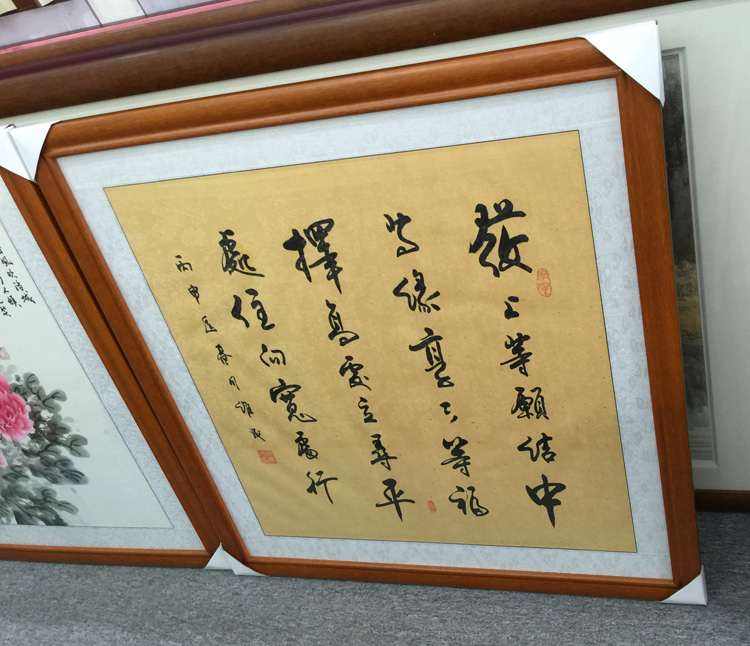 發上等願結中
等緣享下等福
擇高處立尋平
處住向寬處行
丙申